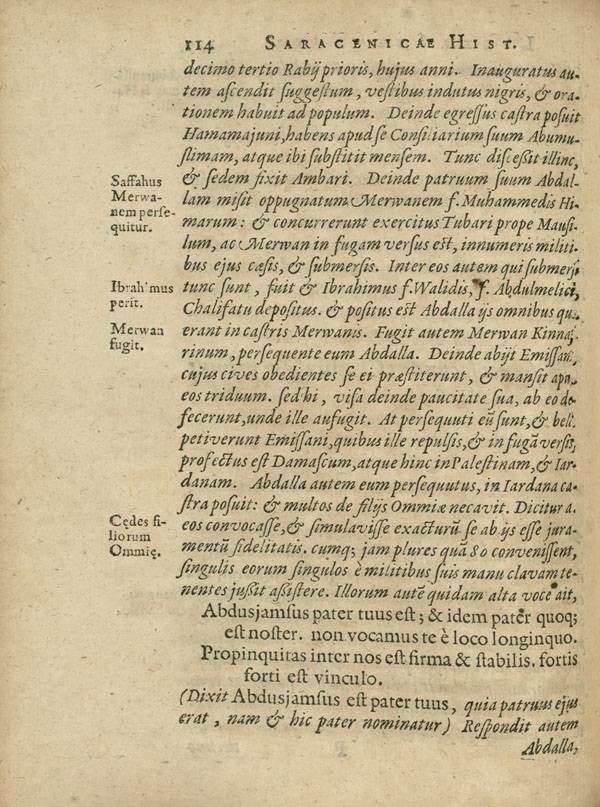 114 SARACENICAE HIST.
decimo tertio Rabij prioris, hujus anni. Inauguratus au-
tem ascendit suggestum, vestibus indutus nigris, & ora-
tionem habuit ad populum. Deinde egressus castra posuit
Hamamajuni, habens apud se Consiliarium suum Abumu-
slimam, atque ibi substitit mensem. Tunc discessit illinc,
& sedem fixit Ambari. Deinde patruum suum Abdal-
Saffahus
Merwa-
nem perse-
quitur.
lam misit oppugnatum Merwanem f. Muhammedis Hi-
marum: & concurrerunt exercitus Tubari prope Mausi-
lum, ac Merwan in fugam versus est, innumeris militi-
bus ejus cæsis, & submersis. Inter eos autem qui submersi
Ibrahimus
perit.
tunc sunt, fuit & Ibrahimus f. Walidis, f. Abdulmelici,
Chalifatu depositus. & positus est Abdalla ijs omnibus quæ
Merwan
fugit.
erant in castris Merwanis. Fugit autem Merwan
rinum, persequente eum Abdalla. Deinde abijt
cujus cives obedientes se ei præstiterunt, & mansit
eos triduum. sed hi, visa deinde paucitate sua, ab eo de-
fecerunt, unde ille aufugit. At persequuti eū sunt, &
petiverunt Emissani, quibus ille repulsis, & in fugā versis,
profectus est Damascum, atque hinc in Palestinam, & Iar-
danam. Abdalla autem eum persequutus, in Iardana ca-
stra posuit: & multos de filijs Ommiæ necavit. Dicitur
Cędes fi-
liorum
Ommię.
eos convocasse, & simulavisse exacturū se ab ijs esse jura-
mentū fidelitatis. cumq; jam plures quā 80 convenissent,
singulis eorum singulos è militibus suis manu clavam te-
nentes jussit assistere. Illorum autē quidam alta voce ait,
Abdusjamsus pater tuus est; & idem pater quoq;
est noster. non vocamus te è loco longinquo.
Propinquitas inter nos est firma & stabilis. fortis
forti est vinculo.
(Dixit Abdusjamsus est pater tuus, quia patruus ejus
erat, nam & hic pater nominatur) Respondit autem
Abdalla,